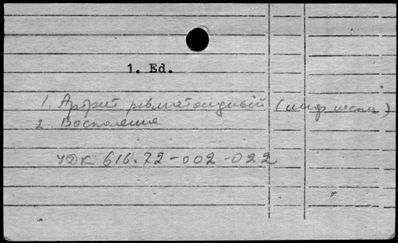 1. Ed.
1. Артрит ревматоидный
2. Воспаление
УДК 616.72-002-022